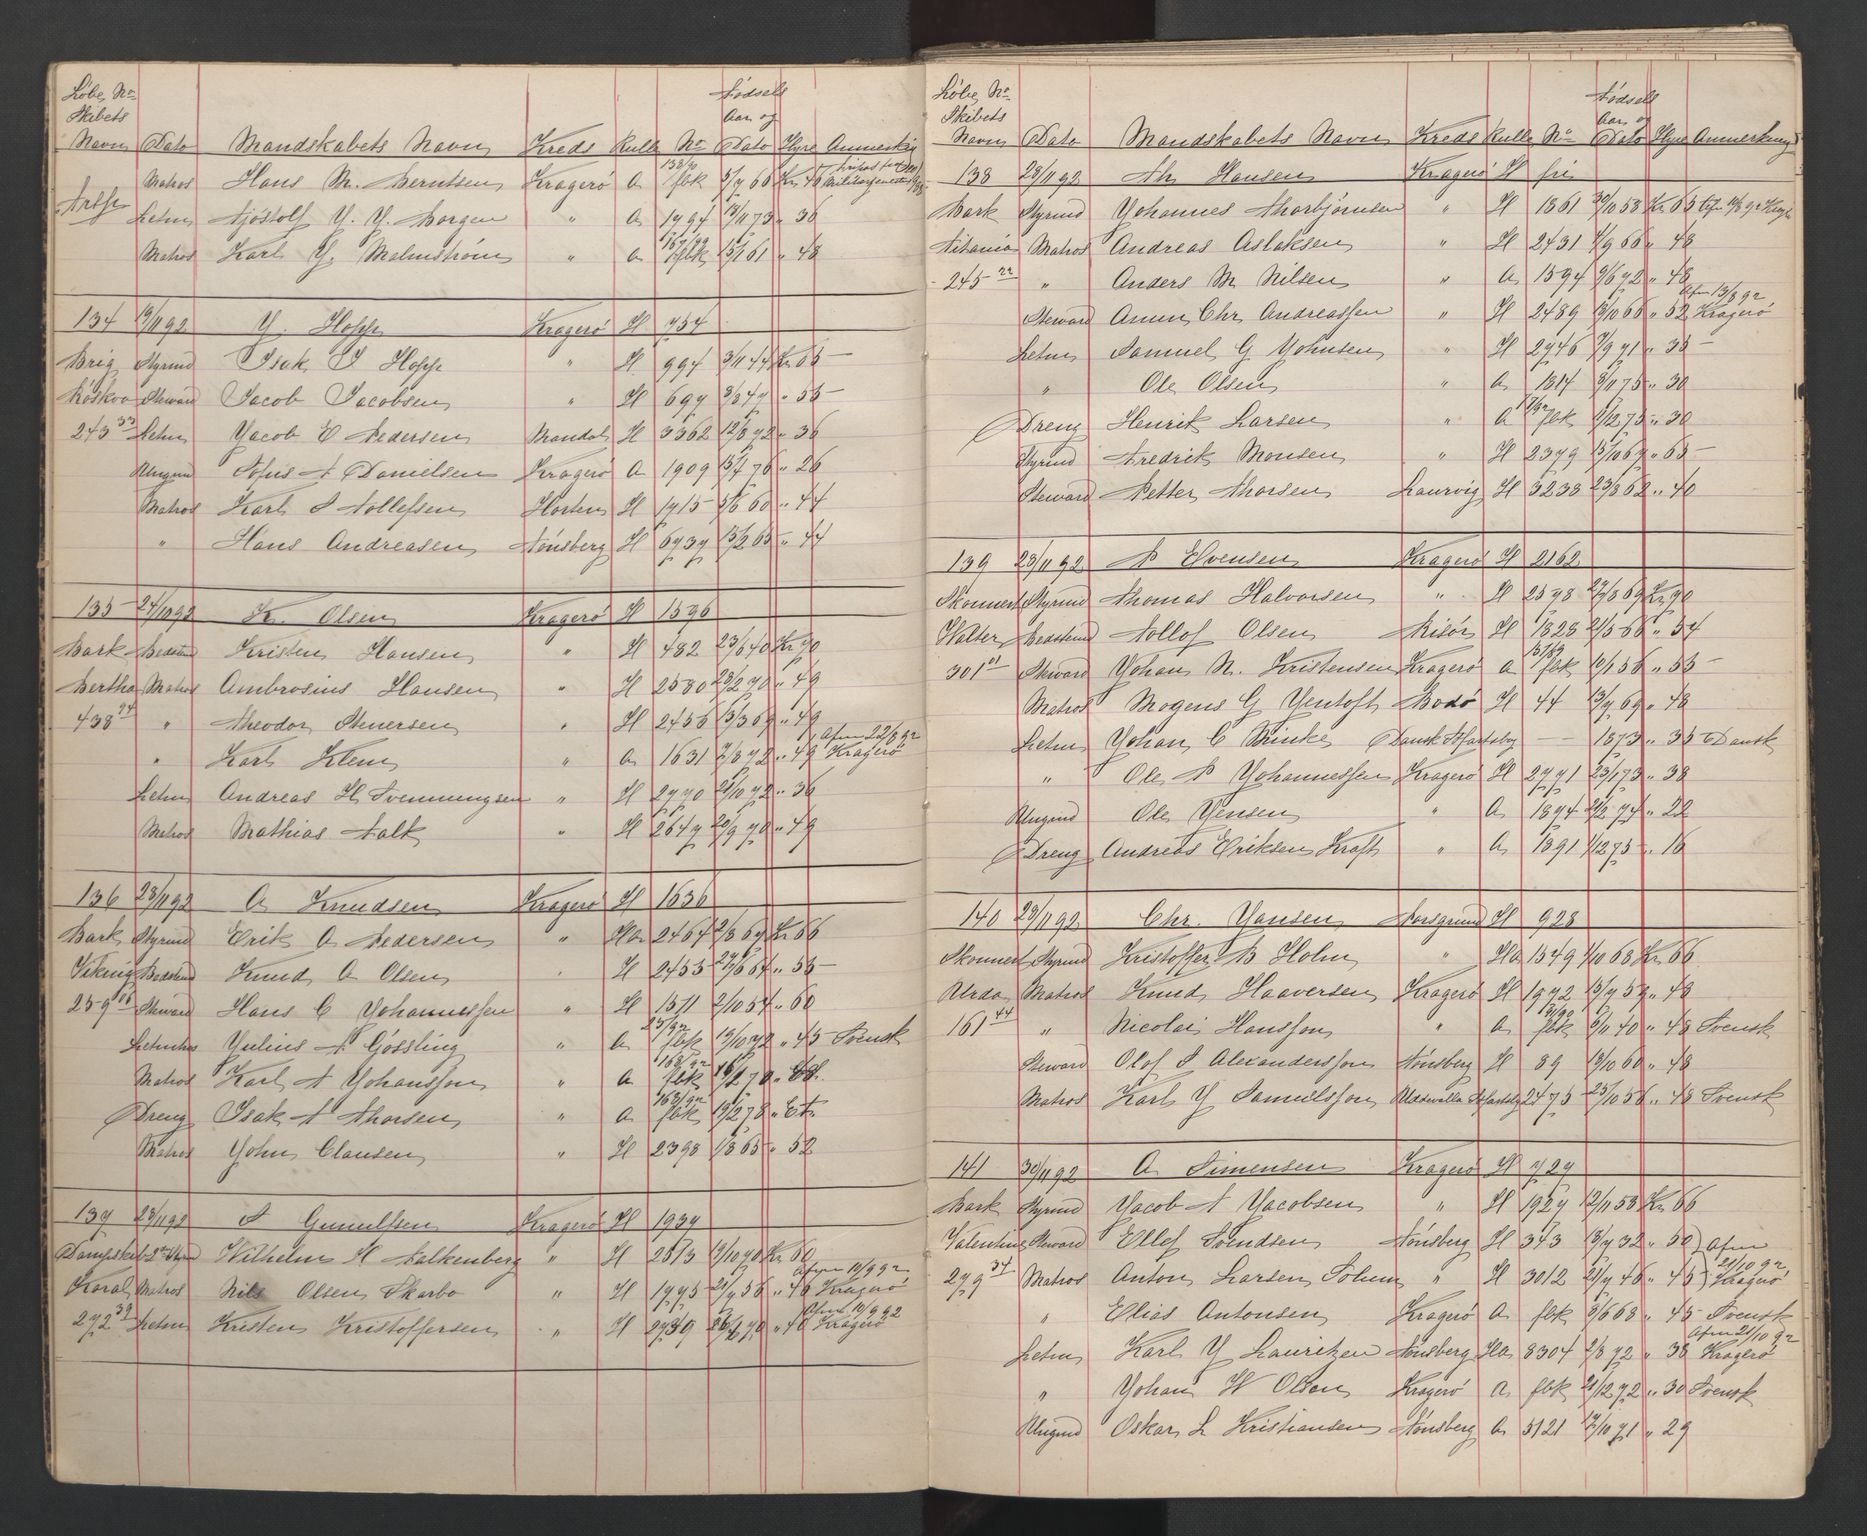 Løbe No
Skibets
Navn Dato Mandskabets Navn Kreds Rulle No Fødsels Aar og Dato Hyre Anmerkng
Matros Hans M. Berntsen Kragerø A 138/90 fbk 5/7 66 Kr 46
Letm Ajøstolf J. J. Borgen " A 1794 13/11 73 " 36
Matros Karl J. Malmstrøm " A 167/92 fbk 15/1 61 " 48
134 19/11 92 J. Hopp Kragerø H 754
Brig Styrmd Isak I Hopp " H 994 3/11 44 Kr 65
Røskva Steward Jacob Jacobsen " H 697 3/8 47 " 55
243 33 Letm Jacob E Pedersen Mandal H 3362 12/8 72 " 36
Ungmd Sofus A Danielsen Kragerø A 1909 15/7 76 " 26
Matros Karl S Tollefsen Horten H 1715 5/6 60 " 44
" Hans Andreasen Tønsberg H 6737 15/2 65 " 44
135 24/10 92 K. Olsen Kragerø H 1596
Bark Bedstmd Kristen Hansen " H 482 23/6 40 Kr 70
Bertha Matros Ambrosius Hansen " H 2580 28/2 70 " 49
438 74 " Theodor Stenersen " H 2456 15/3 69 " 49
" Karl Klem " A 1631 7/8 72 " 49 Afm 22/8 92 Kragerø
Letm Andreas H Svenningsen " H 2770 21/10 72 " 36
Matros Mathias Falk " H 2647 20/9 70 " 49
136 28/11 92 A Knudsen Kragerø H 1636
Bark Styrmd Erik A Pedersen " HA 2464 2/8 67 Kr 66
Viking Bedstmd Knud A Olsen " H 2455 27/6 67 " 55
259 06 Steward Hans C Johannessen " H 1571 2/10 54 " 60
Letmtros Julius A Gøssling " A 23/92 fbk 19/10 72 " 45 Svensk
Matros Karl A Johansson " A 168/92 fbk 16/2 70
Dreng Isak A Thorsen " A 163/92 fbk 19/2 78
Matros John Clausen " H 2398 1/8 65 " 52
137 28/11 92 A Gunulfsen Kragerø H 1937
Dampskib 2den Styrmd Wilhelm H Falkenberg " H 2813 19/10 70 Kr 60
Koral Matros Nils Olsen Skarbo " H 1775 21/7 56 " 46 Afm 10/9 92 Kragerø
272 39 Letm Kristen Kristoffersen " H 2739 26/6 70 " 40 Afm 10/9 92 Kragerø
Løbe No
Skibets
Navn Dato Mandskabets Navn Kreds Rulle No Fødsels Aar og Dato Hyre Anmerkning
138 28/11 92 Th Hansen Kragerø H fri
Bark Styrmd Johannes Thorbjørnsen " H 1861 30/10 53 Kr 65
Titania Matros Andreas Aslaksen " H 2431 4/9 66 " 48
245 22 " Anders M Nilsen " A 1594 9/6 72 " 48
Steward Anun Chr Andreassen " H 2489 13/10 66 " 52 Afm 13/8 92 Kragerø
Letm Samuel G Johnsen " H 2746 7/9 71 " 35
" Ole Olsen " A 1814 8/11 75 " 30
Dreng Henrik Larsen " A fbk 1/12 75 " 30
Styrmd Fredrik Monsen " H 2379 15/10 67 " 65
Steward Petter Thorsen Laurvig H 3233 23/8 62 " 40
139 28/11 92 P Evensen Kragerø H 2162
Skonnert Styrmd Thomas Halvorsen " H 2578 27/8 69 Kr 70
Walter Bedstmd Tollof Olsen Risør H 1828 21/5 66 " 54
301 01 Steward Johan N. Kristensen Kragerø A 57/89 fbk 10/1 56 " 55
Matros Mogens G Jentoft Bodø H 44 13/7 69 " 48
Letm Johan C Brinke Dansk Sfartsbog — 1873 " 35 Dansk
" Ole P Johannessen Kragerø H 2771 23/1 73 " 38
Ungmd Ole Jensen " A 1874 21/2 74 " 22
Dreng Andreas Eriksen Kraft " A 1891 1/12 75 " 16
140 28/11 92 Chr. Jansen Porsgrund H 928
Skonnert Styrmd Kristoffer B Holm " HA 1549 1/10 68 Kr 66
Urda Matros Knud Haaversen Kragerø H 1972 15/7 59 " 48
161 44 " Nicolai Hansson " A 19/90 fbk 9/11 40 " 48 Svensk
Steward Olof S Alexandersson Tønsberg H 89 13/10 60 " 48
Matros Karl J Samuelsson Uddevalla Sfartsbg 2475 25/10 56 " 48 Svensk
141 30/11 92 A Simensen Kragerø H 727
Bark Styrmd Jacob A Jacobsen " H 1927 12/11 53 Kr 66
Valentine Steward Ellef Svendsen Tønsberg H 343 13/7 32 " 50 } Afm
279 34 Matros Anton Larsen Solum " H 3012 21/7 46 " 45 } 21/10 92 Kragerø
" Elias Antonsen Kragerø A fbk 8/6 68 " 45 Svensk
Letm Karl J Lauritzen Tønsberg HA 8304 2/8 72 " 38 Afm 21/10 92 Kragerø
" Johan W Olson Kragerø A fbk 21/12 72 " 30 Svensk
Ungmd Oskar L Kristiansen Tønsberg A 3121 12/10 71 " 29